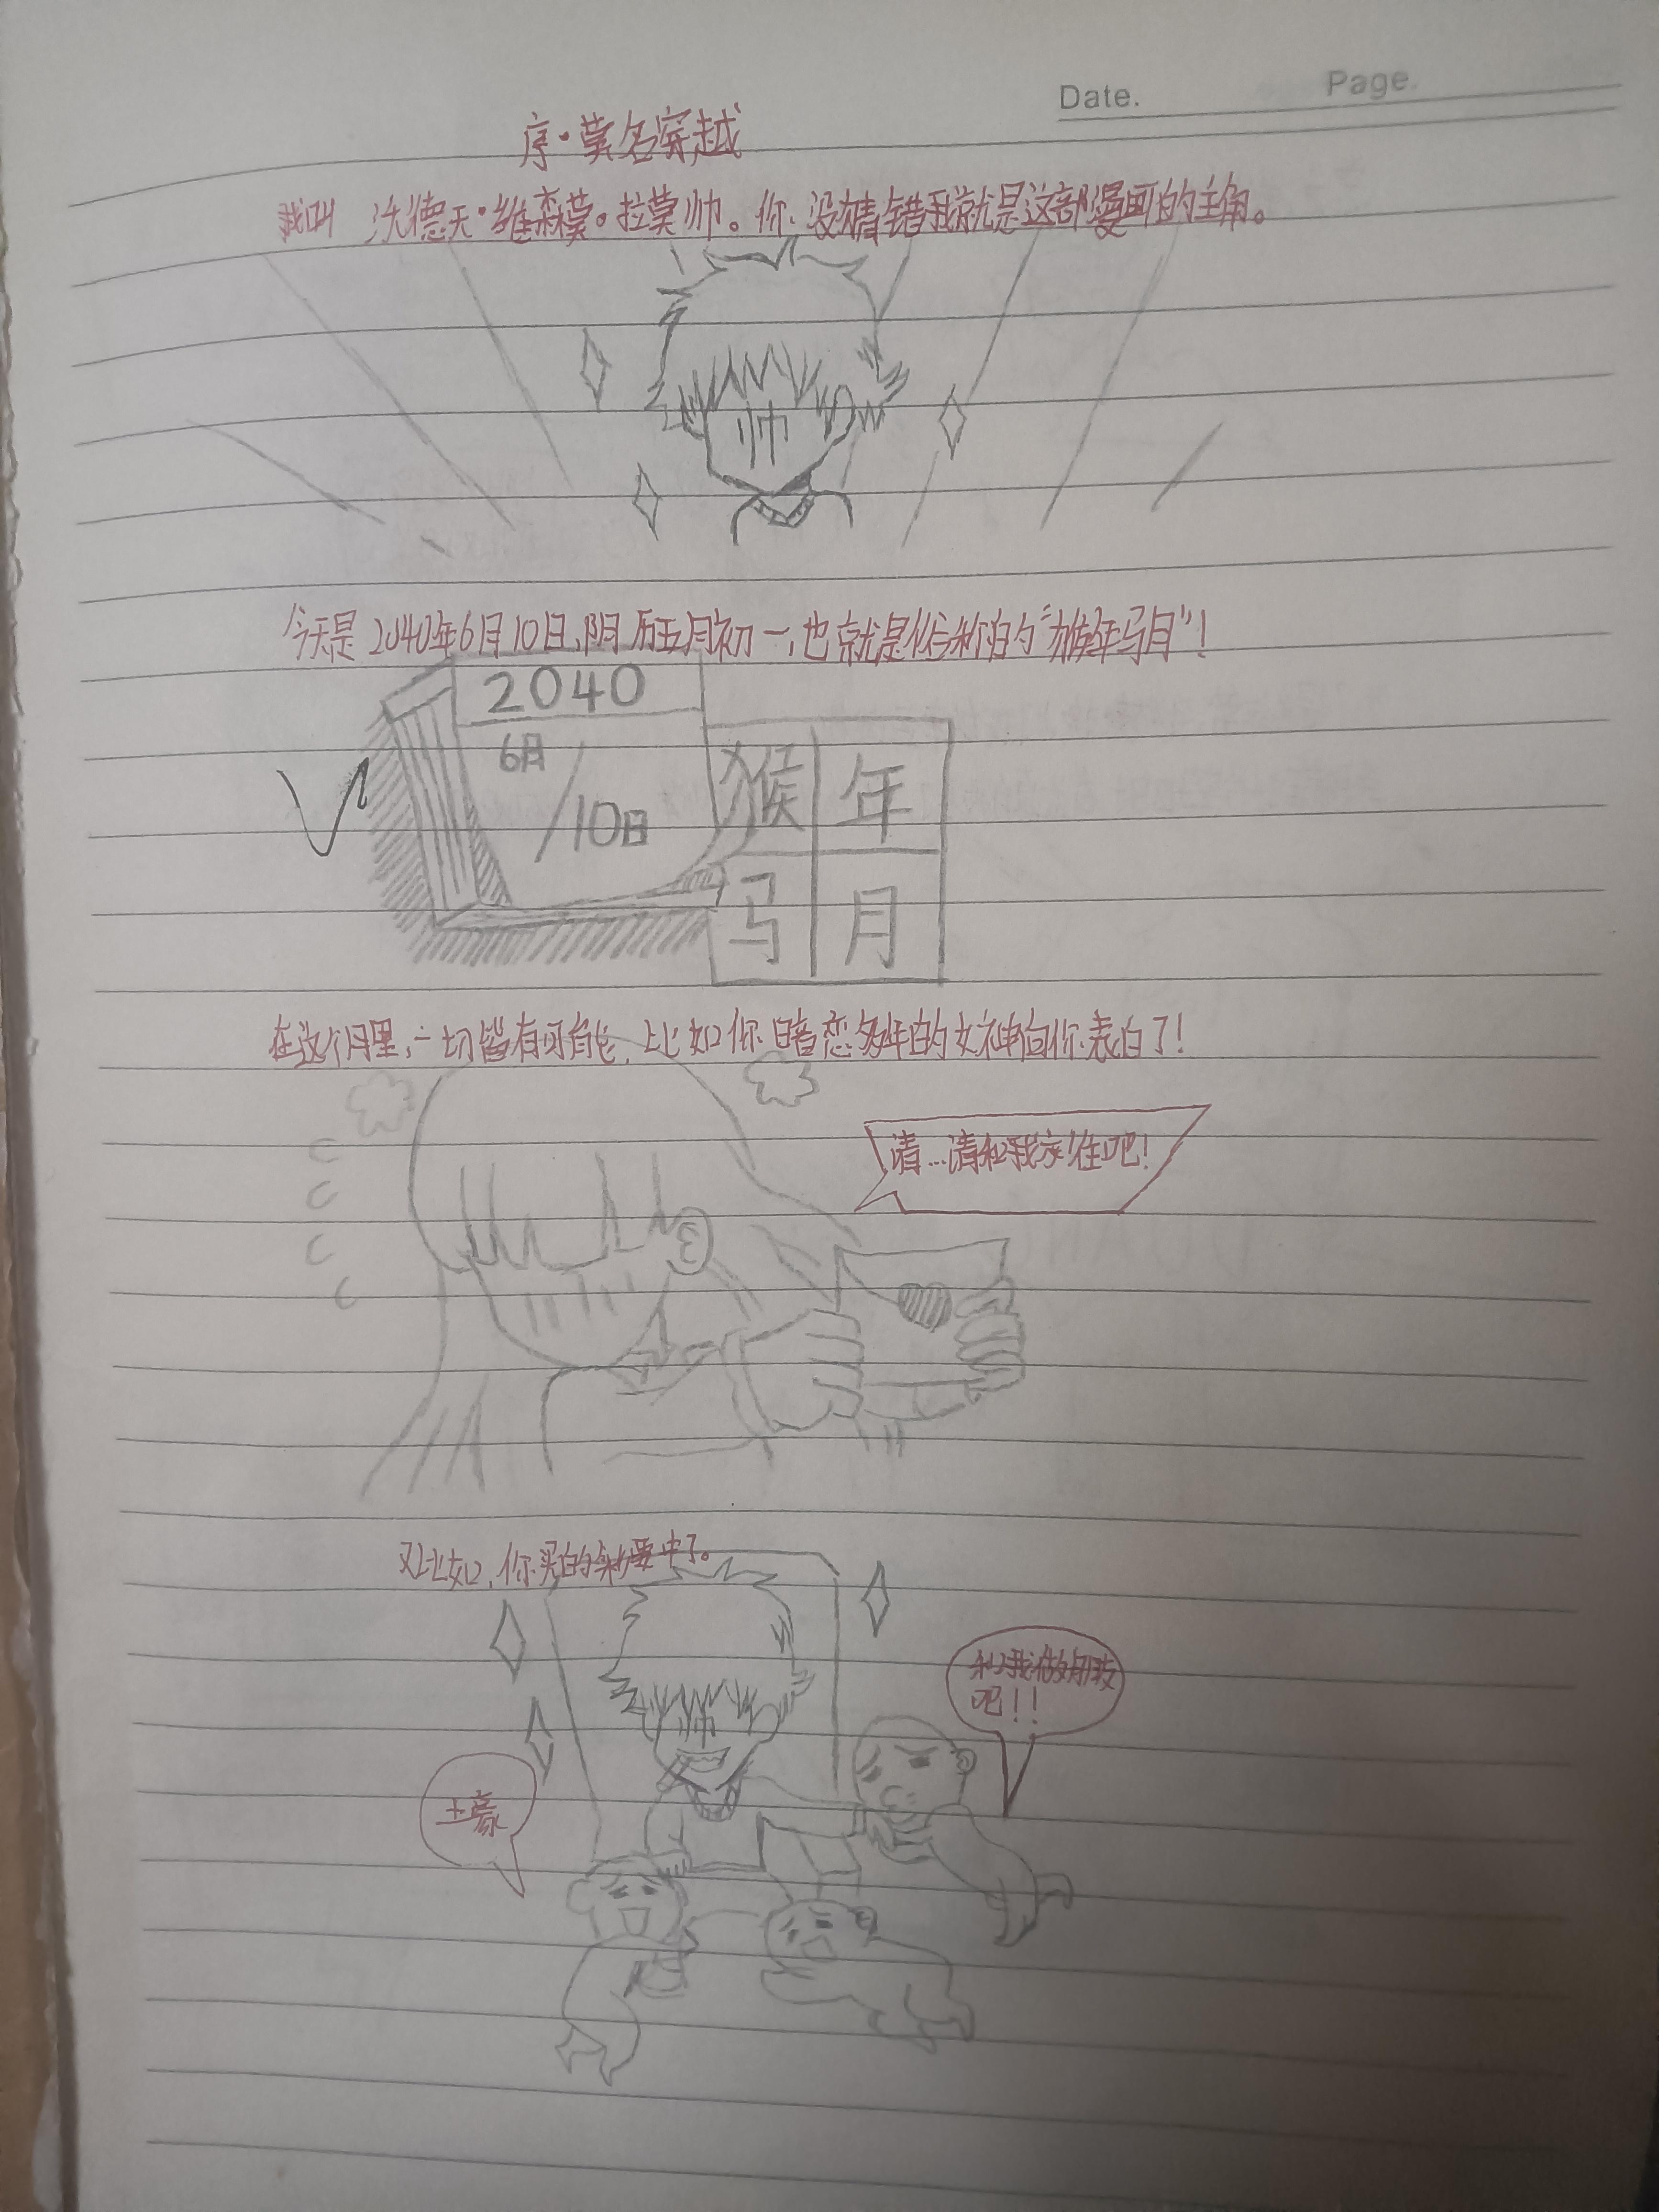 Date.
Page.
序·莫名穿越
我叫 沃德天·维森莫·拉莫帅。你没猜错我就是这部漫画的主角。
帅
今天是2040年6月10日,阴历五月初一,也就是俗称的“猴年马月”!
2040
6月
/10日
猴年
马月
在这个月里,一切皆有可能,比如你暗恋多年的女神向你表白了!
请…请和我交往吧!
又比如,你买的彩票中了。
帅
和我做朋友
吧!!
土豪